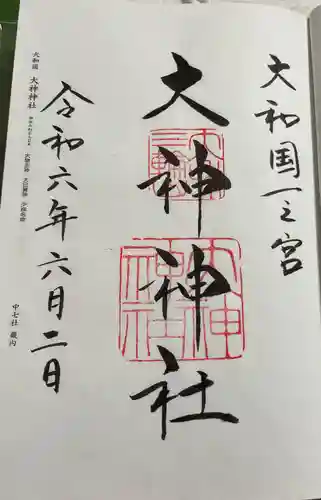 大和国一之宮
大神神社
三輪
大神
神社
令和六年六月二日
大和国
大神神社
中七社 畿内